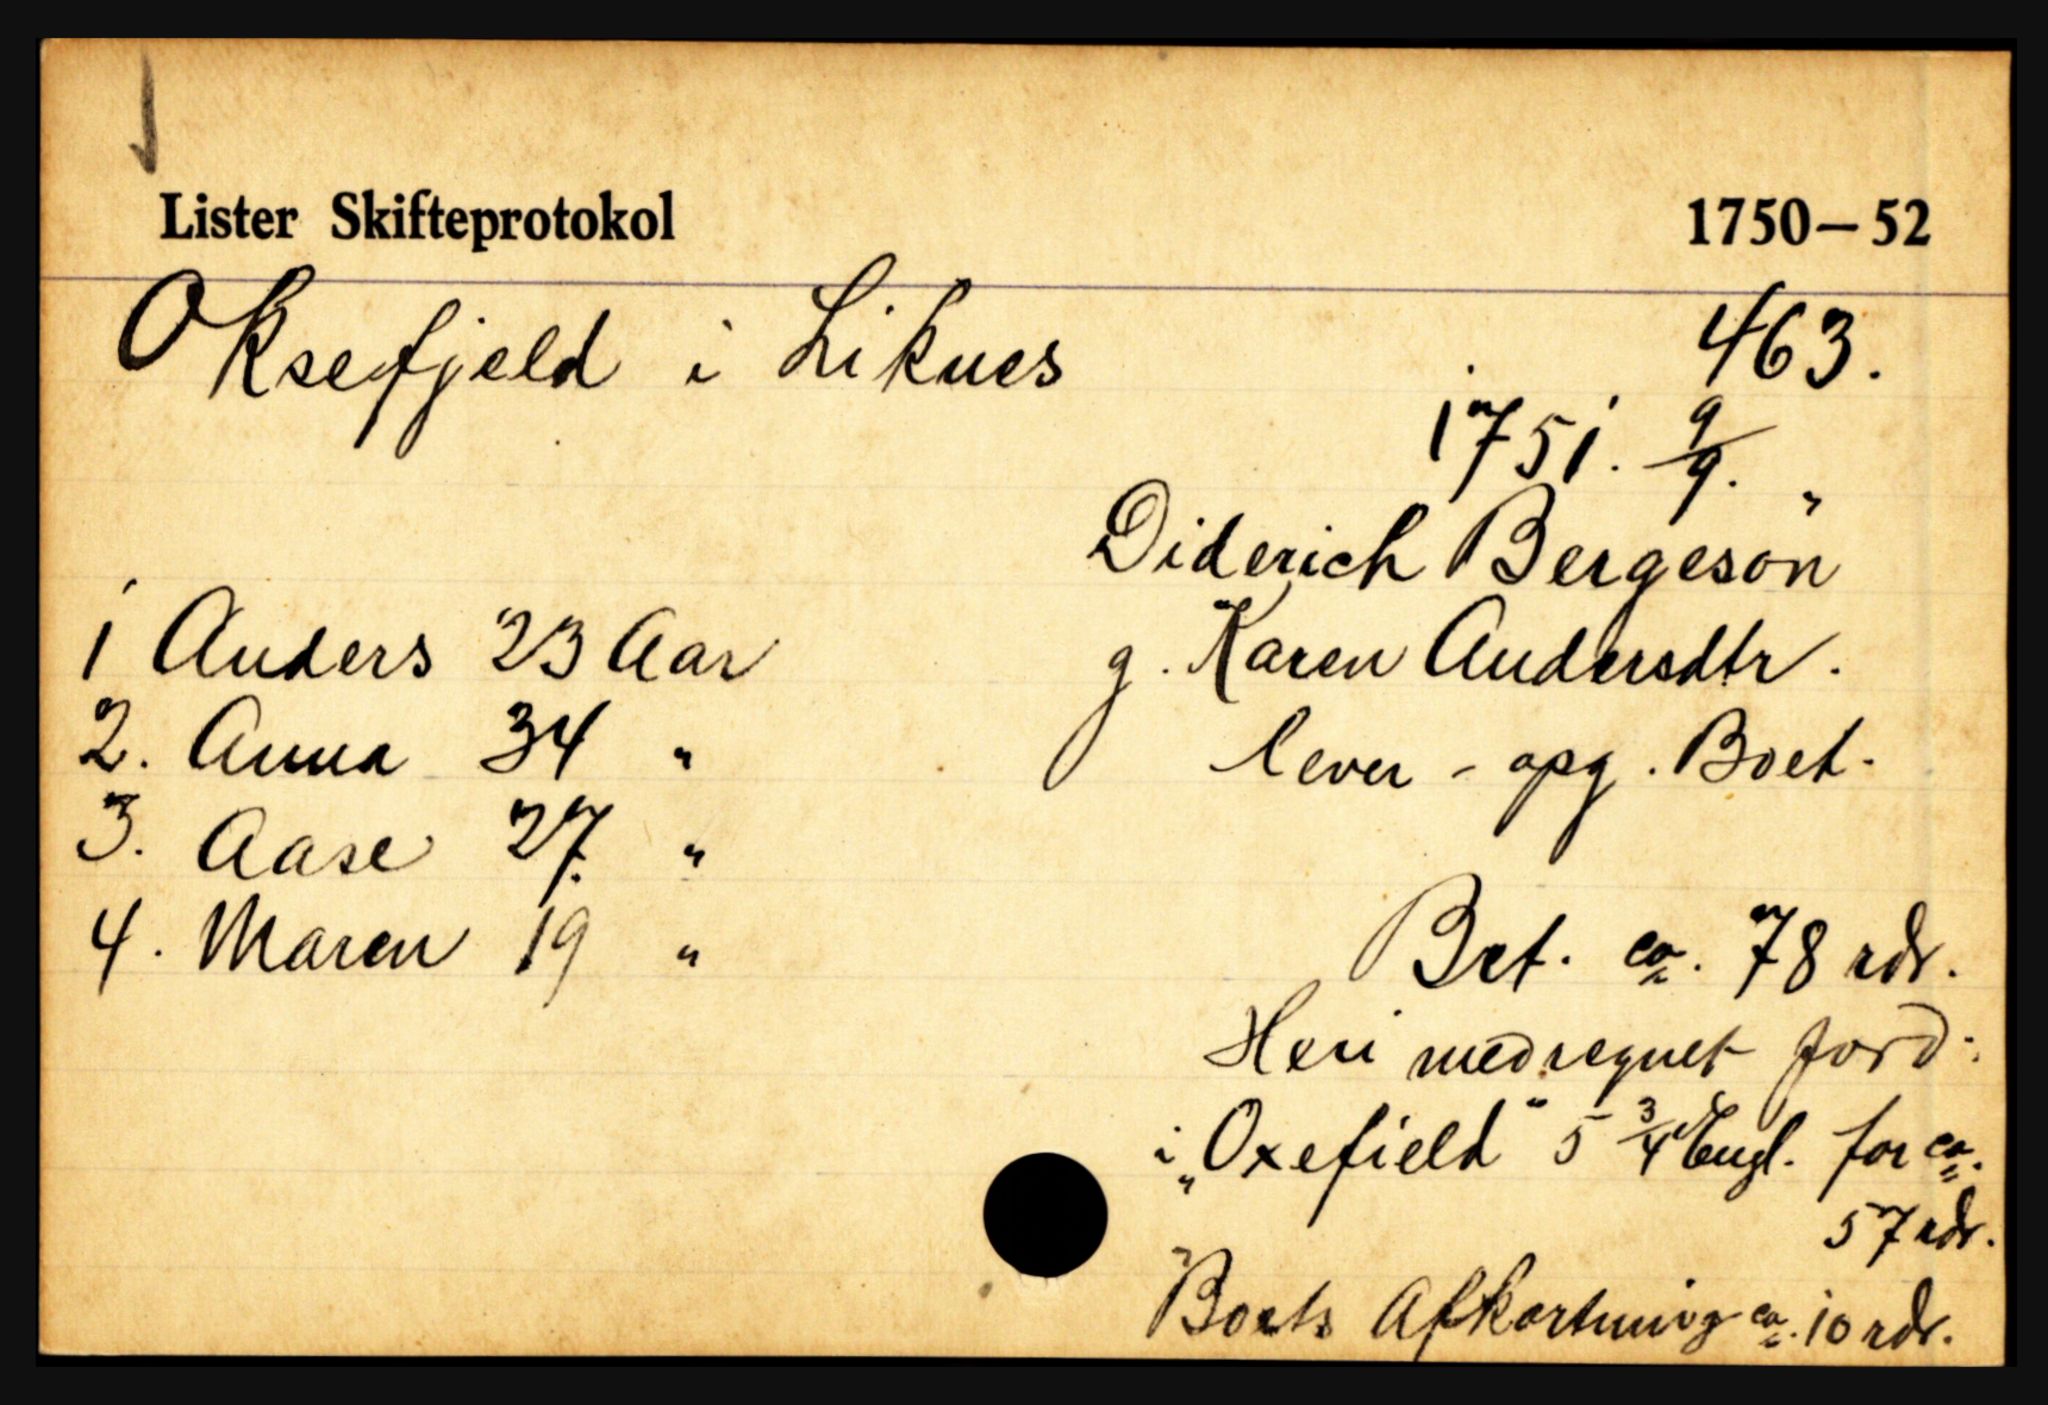 Lister Skifteprotokol 1750–52
Oksefjeld i Liknes 463.
1751. 9/9.
Diderich Bergeson
1 Anders 23 Aar g. Karen Andersdtr.
2. Anna 34 " lever - opg. Boet.
3. Aase 27. "
4. Maren 19 " Bet. ca. 78 rdr.
Heri medregnet jord:
i „Oxefield" 5 3/4 Engl. for ca.
57 rdr.
Boets Afkortning ca. 10 rdr.